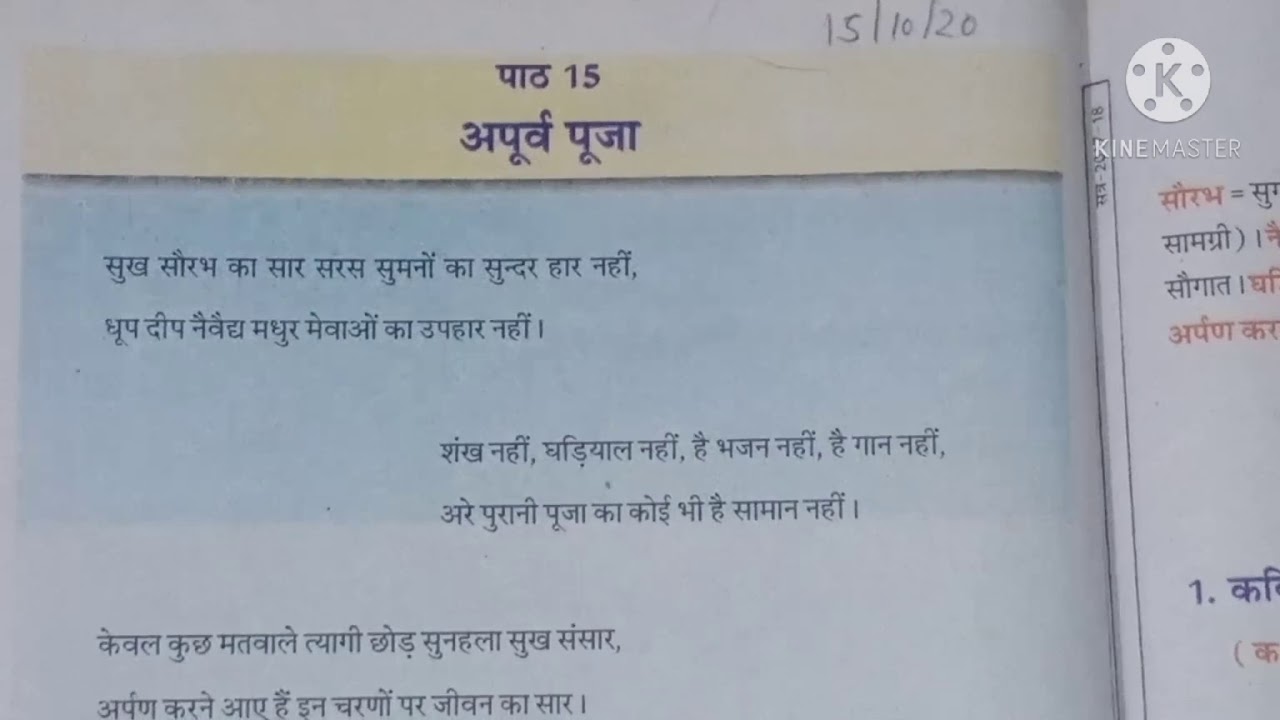 15/10/20
पाठ 15
अपूर्व पूजा
सुख सौरभ का सार सरस सुमनों का सुन्दर हार नहीं,
धूप दीप नैवैद्य मधुर मेवाओं का उपहार नहीं।
शंख नहीं, घड़ियाल नहीं, है भजन नहीं, है गान नहीं,
अरे पुरानी पूजा का कोई भी है सामान नहीं।
केवल कुछ मतवाले त्यागी छोड़ सुनहला सुख संसार,
अर्पण करने आए हैं इन चरणों पर जीवन का सार।
K
KINEMASTER
सौरभ =
सामग्री)।
सौगात।
अर्पण
1.